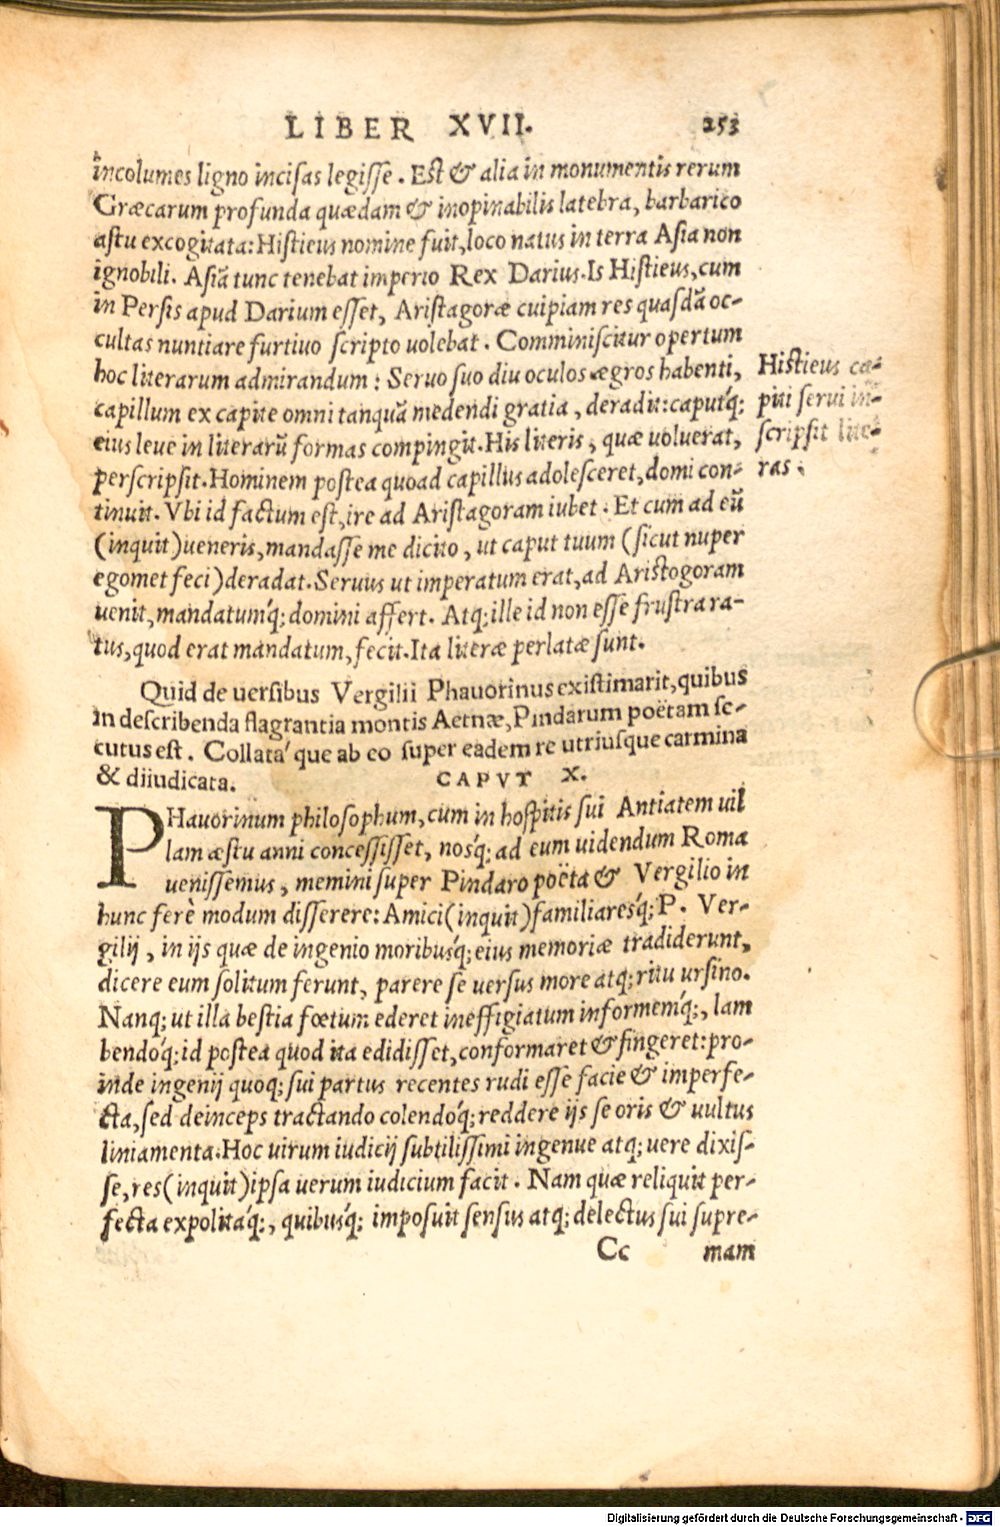 LIBER XVII. 253
incolumes ligno incisas legisse. Est & alia in monumentis rerum
Græcarum profunda quædam & inopinabilis latebra, barbarico
astu excogitata: Histieus nomine fuit, loco natus in terra Asia non
ignobili. Asiā tunc tenebat imperio Rex Darius. Is Histieus, cum
in Persis apud Darium esset, Aristagoræ cuipiam res quasdā oc-
cultas nuntiare furtiuo scripto uolebat. Comminiscitur opertum
hoc literarum admirandum: Seruo suo diu oculos ægros habenti,
capillum ex capite omni tanquā medendi gratia, deradit: caputq́;
eius leue in literarū formas compingit. His literis, quæ uoluerat,
perscripsit. Hominem postea quoad capillus adolesceret, domi con-
tinuit. Vbi id factum est, ire ad Aristagoram iubet. Et cum ad eū
(inquit) ueneris, mandasse me dicito, ut caput tuum (sicut nuper
egomet feci) deradat. Seruus ut imperatum erat, ad Aristogoram
uenit, mandatumq́; domini affert. Atq; ille id non esse frustra ra-
tus, quod erat mandatum, fecit. Ita literæ perlatæ sunt.
Histieus ca-
piti serui in-
scripsit lite-
ras.
Quid de uersibus Vergilii Phauorinus existimarit, quibus
in describenda flagrantia montis Aetnæ, Pindarum poëtam se-
cutus est. Collata' que ab eo super eadem re utriusque carmina
& diiudicata. CAPVT X.
PHauorinum philosophum, cum in hospitis sui Antiatem uil
lam æstu anni concessisset, nosq́; ad eum uidendum Roma
uenissemus, memini super Pindaro poëta & Vergilio in
hunc ferè modum disserere: Amici (inquit) familiaresq́; P. Ver-
gilij, in ijs quæ de ingenio moribusq́; eius memoriæ tradiderunt,
dicere eum solitum ferunt, parere se uersus more atq; ritu ursino.
Nanq; ut illa bestia fœtum ederet ineffigiatum informemq́;, lam
bendoq́; id postea quod ita edidisset, conformaret & fingeret: pro-
inde ingenij quoq; sui partus recentes rudi esse facie & imperfe-
cta, sed deinceps tractando colendoq́; reddere ijs se oris & uultus
liniamenta. Hoc uirum iudicij subtilissimi ingenue atq; uere dixis-
se, res (inquit) ipsa uerum iudicium facit. Nam quæ reliquit per-
fecta expolitaq́;, quibusq́; imposuit sensus atq; delectus sui supre-
Cc mam
Digitalisierung gefördert durch die Deutsche Forschungsgemeinschaft - DFG